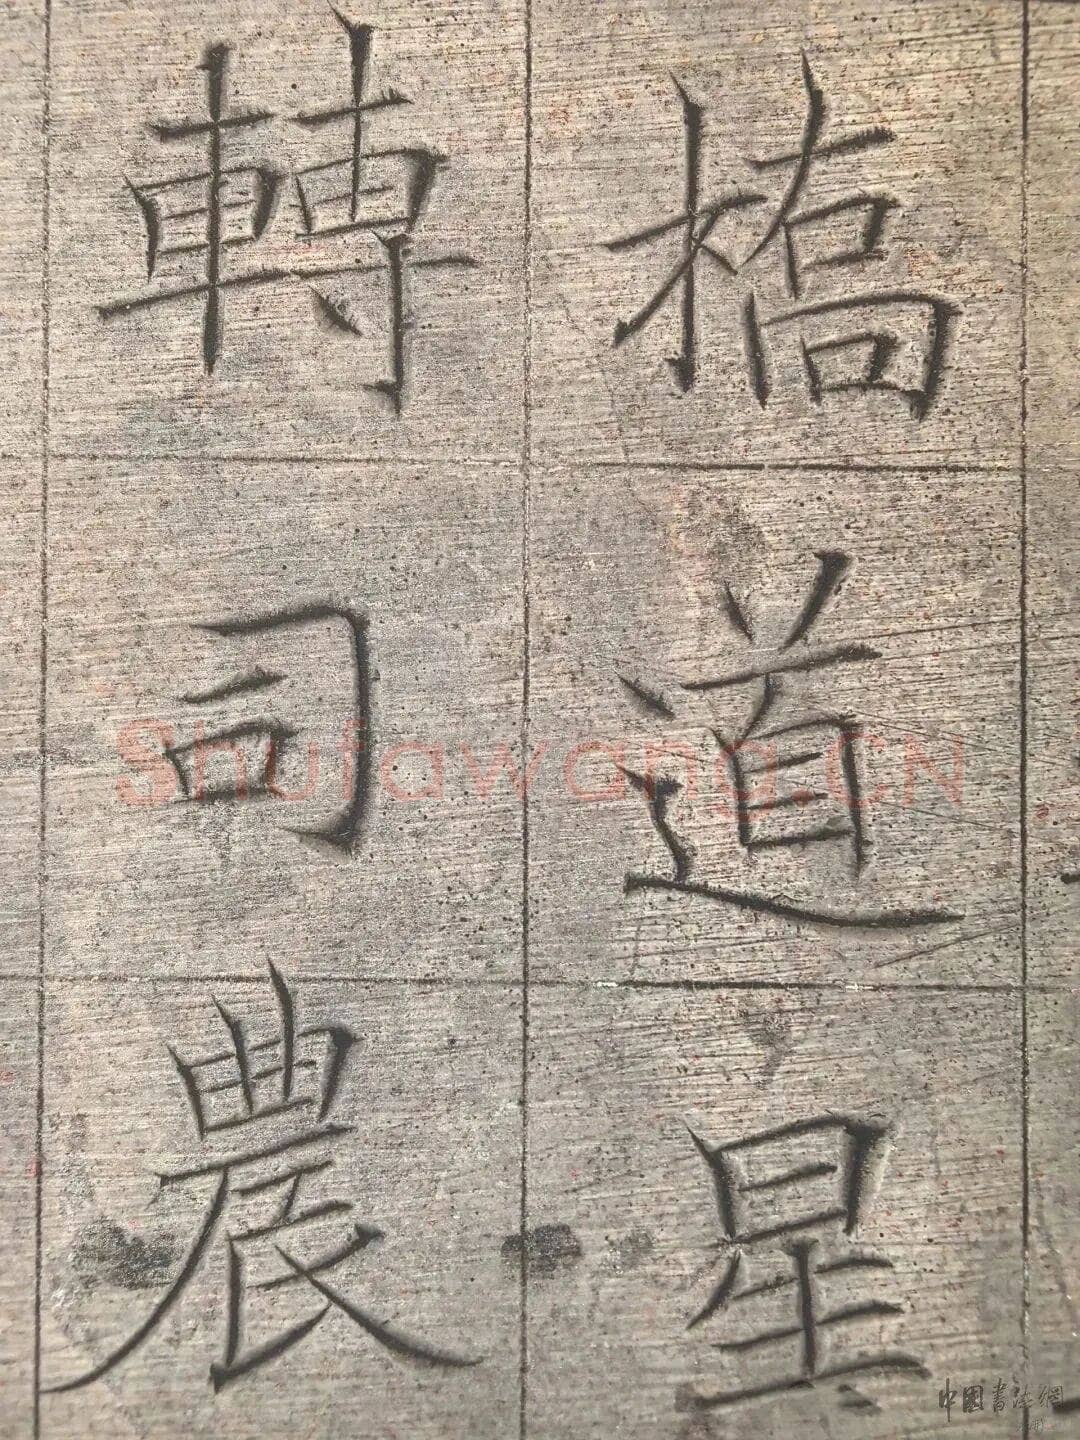 橋道星
轉司農
Shufawang.CN
中國書法網